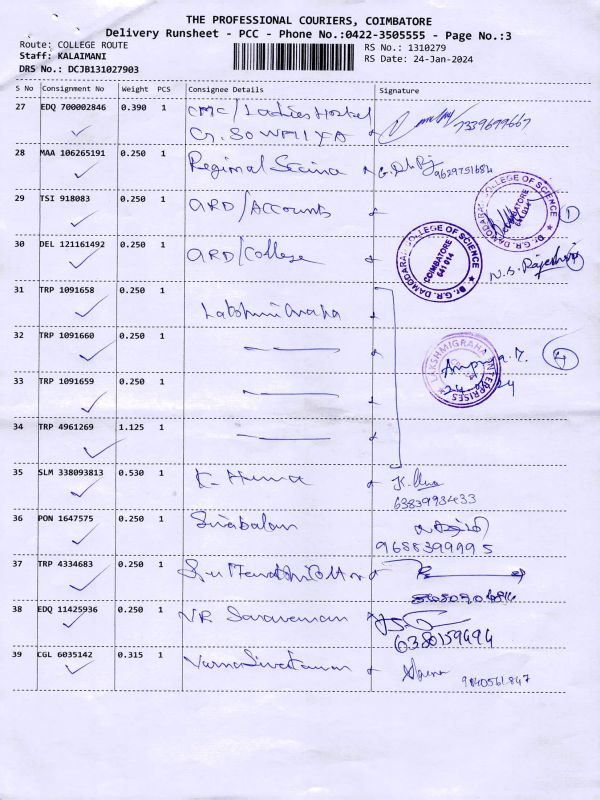 THE PROFESSIONAL COURIERS, COIMBATORE
Delivery Runsheet - PCC - Phone No.:0422-3505555 - Page No.:3
Route: COLLEGE ROUTE
RS No.: 1310279
Staff: KALAIMANI
RS Date: 24-Jan-2024
DRS No.: DCJB131027903
S No Consignment No Weight PCS Consignee Details Signature
27 EDQ 700002846 0.390 1 CMC/Ladies Hostel
Cr. SOWMIYA 7339699667
28 MAA 106265191 0.250 1 Regional 9629751684
29 TSI 918083 0.250 1 ARD/Accounts
Dr. G.R. DAMODARAN COLLEGE OF SCIENCE
COIMBATORE
641 014
1
30 DEL 121161492 0.250 1 ARD/College
Dr. G.R. DAMODARAN COLLEGE OF SCIENCE
COIMBATORE
641 014
N.S. Rajeshwari
31 TRP 1091658 0.250 1
32 TRP 1091660 0.250 1
LAKSHMIGRAHA ENTERPRISES
4
33 TRP 1091659 0.250 1
34 TRP 4961269 1.125 1
35 SLM 338093813 0.530 1 K. Hema K. Hema
6383993433
36 PON 1647575 0.250 1 Sivabalan
9688399995
37 TRP 4334683 0.250 1
38 EDQ 11425936 0.250 1 VR Saravanan
6380159494
39 CGL 6035142 0.315 1
9840561847